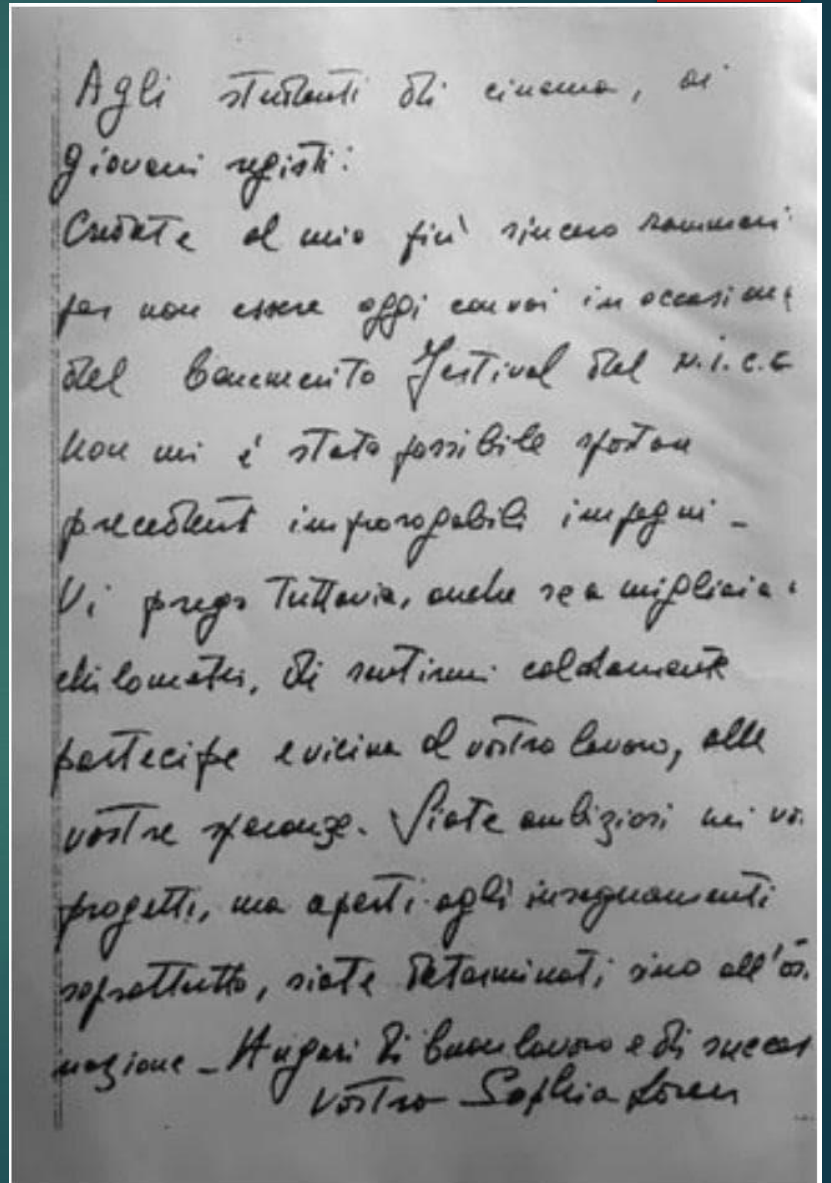 Agli studenti di cinema, ai
giovani registi:
Credete al mio più sincero rammari
per non essere oggi con voi in occasione
del benemerito Festival del N.I.C.E
Non mi è stato possibile spostare
precedenti improrogabili impegni -
Vi prego tuttavia, anche se a migliaia
chilometri, di sentirmi caldamente
partecipe e vicina al vostro lavoro, alle
vostre speranze. Siate ambiziosi nei vo
progetti, ma aperti agli insegnamenti
soprattutto, siate determinati sino all'os
nazione - Auguri di buon lavoro e di succes
vostra Sophia Loren